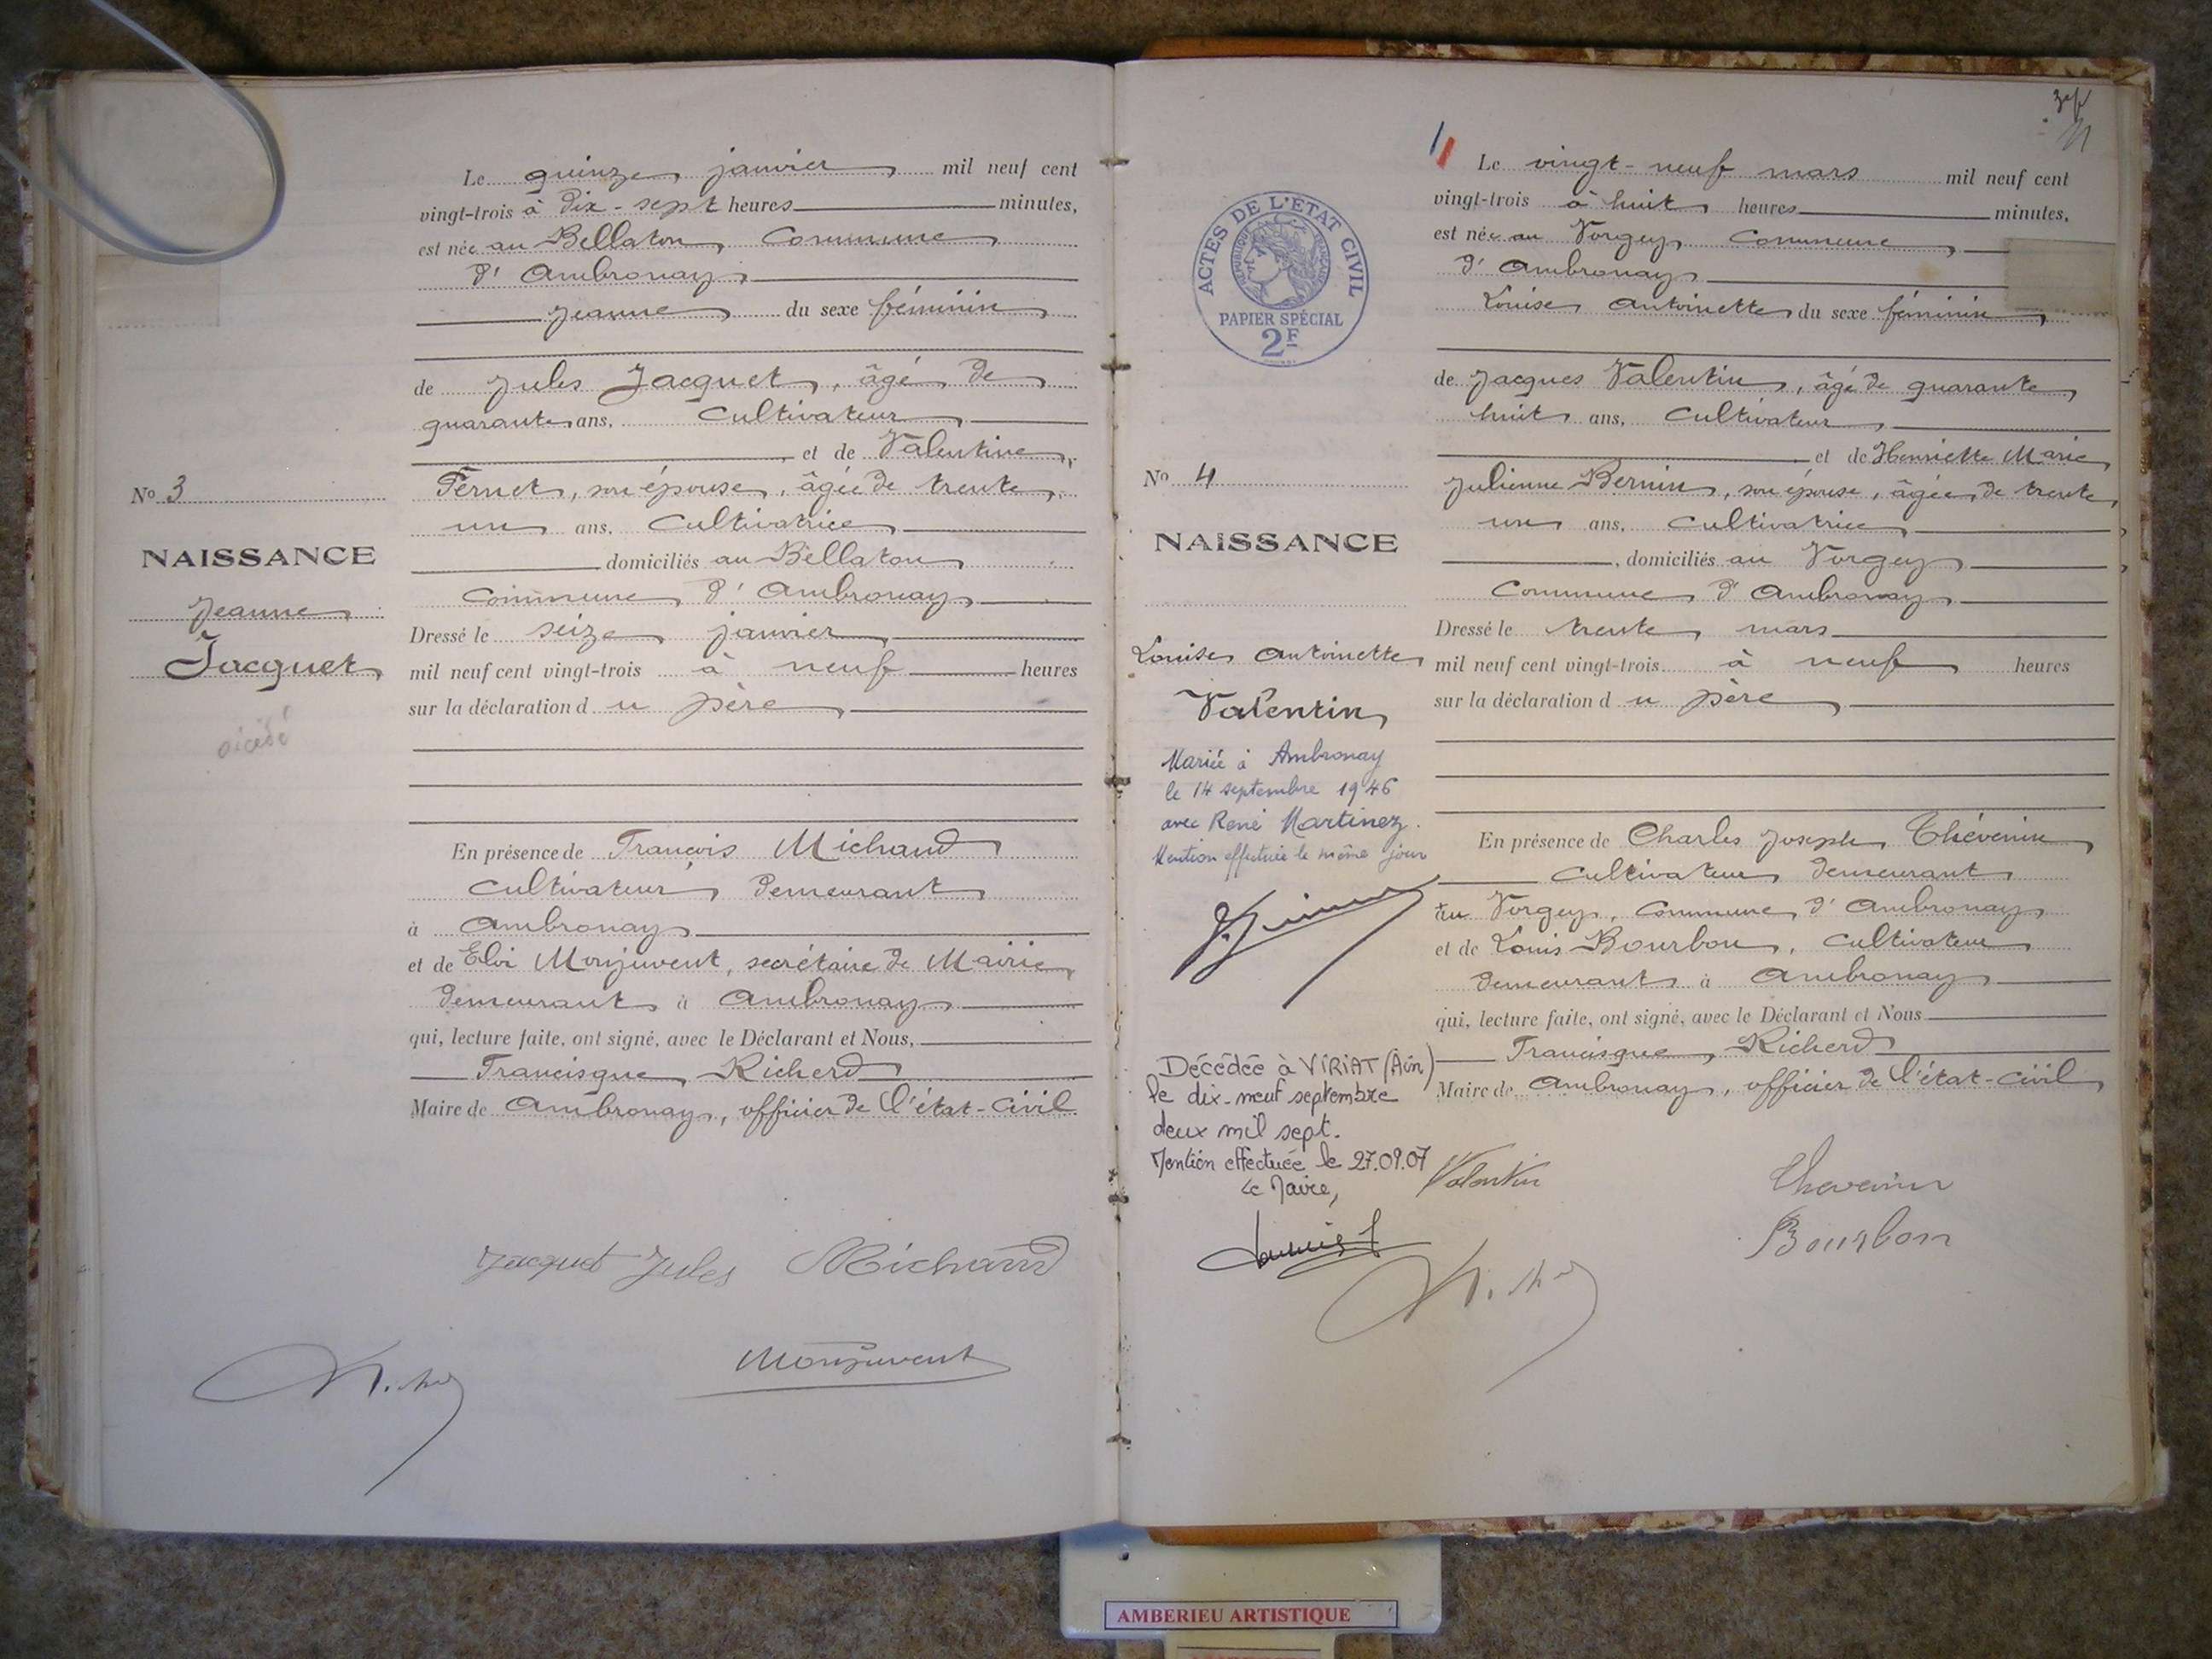 Le quinze janvier mil neuf cent
vingt-trois à dix-sept heures minutes,
est née au Bellaton, Commune
d'Ambronay
Jeanne du sexe féminin
de Jules Jacquet, âgé de
quarante ans, Cultivateur
et de Valentine
Fernet, son épouse, âgée de trente
un ans, Cultivatrice
domiciliés au Bellaton
Commune d'Ambronay
Dressé le seize janvier
mil neuf cent vingt-trois à neuf heures
sur la déclaration du père
En présence de François Michaud
Cultivateur, demeurant
à Ambronay
et de Eloi Monjuvent, secrétaire de Mairie,
demeurant à Ambronay
qui, lecture faite, ont signé, avec le Déclarant et Nous,
Francisque Richerd
Maire de Ambronay, officier de l'état-civil
No 3
NAISSANCE
Jeanne
Jacquet
Jacquet Jules Michaud
Monjuvent
Le vingt-neuf mars mil neuf cent
vingt-trois à huit heures minutes,
est née au Vorgey, Commune
d'Ambronay
Louise Antoinette du sexe féminin
de Jacques Valentin, âgé de quarante
huit ans, Cultivateur
et de Henriette Marie
Julienne Bernin, son épouse, âgée de trente
un ans, Cultivatrice
, domiciliés au Vorgey
Commune d'Ambronay
Dressé le trente mars
mil neuf cent vingt-trois à neuf heures
sur la déclaration du père
En présence de Charles Joseph Thévenin
Cultivateur demeurant
au Vorgey, Commune d'Ambronay
et de Louis Bourbon, Cultivateur
demeurant à Ambronay
qui, lecture faite, ont signé, avec le Déclarant et Nous
Francisque Richerd
Maire de Ambronay, officier de l'état-civil
ACTES DE L'ETAT CIVIL
REPUBLIQUE FRANÇAISE
PAPIER SPÉCIAL
2F
No 4
NAISSANCE
Louise Antoinette
Valentin
Mariée à Ambronay
le 14 septembre 1946
avec René Martinez.
Mention effectuée le même jour
Décédée à VIRIAT (Ain)
le dix-neuf septembre
deux mil sept.
Mention effectuée le 27.09.07
Le Maire,
Valentin
Thevenin
Bourbon
AMBERIEU ARTISTIQUE